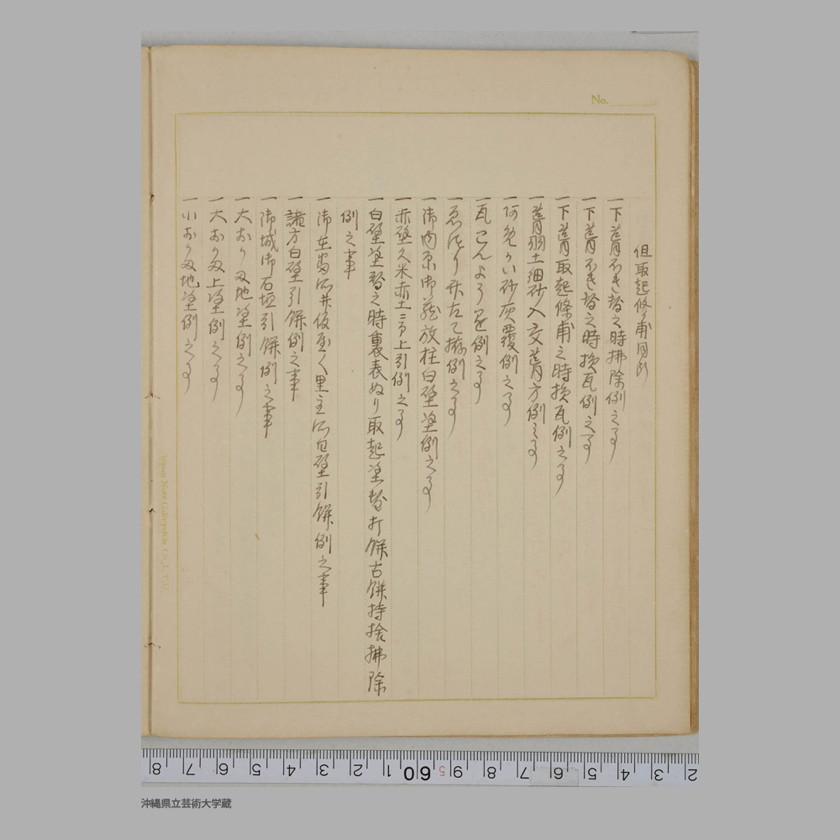 No.
但取起修甫同断
一下葺ふき替之時掃除例之事
一下葺ふき替之時損瓦例之事
一下葺取起修甫之時損瓦例之事
一葺調土細砂入交葺方例之事
一砂灰覆例之事
一瓦こんようを例之事
一例之事
一御内原御蔵放柱白壁塗例之事
一赤壁久米赤土ニ而上引例之事
一白壁塗替之時裏表ぬり取起塗替打餅古餅持捨掃除
例之事
一御在番所并仮屋々里主所白壁引餅例之事
一諸方白壁引餅例之事
一御城御石垣引餅例之事
一大おり〆地塗例之事
一大おり〆上塗例之事
一小おり〆地塗例之事
8 7 6 5 4 3 2 1 60 9 8 7 6 5 4 3 2
沖縄県立芸術大学蔵